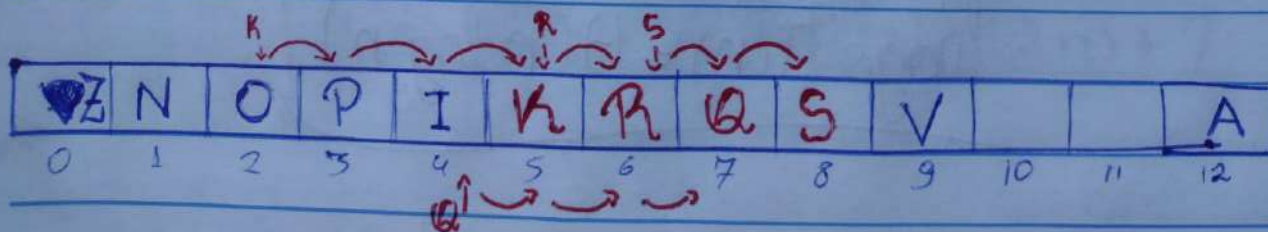 K R S
Z N O P I K R Q S V A
0 1 2 3 4 5 6 7 8 9 10 11 12
Q